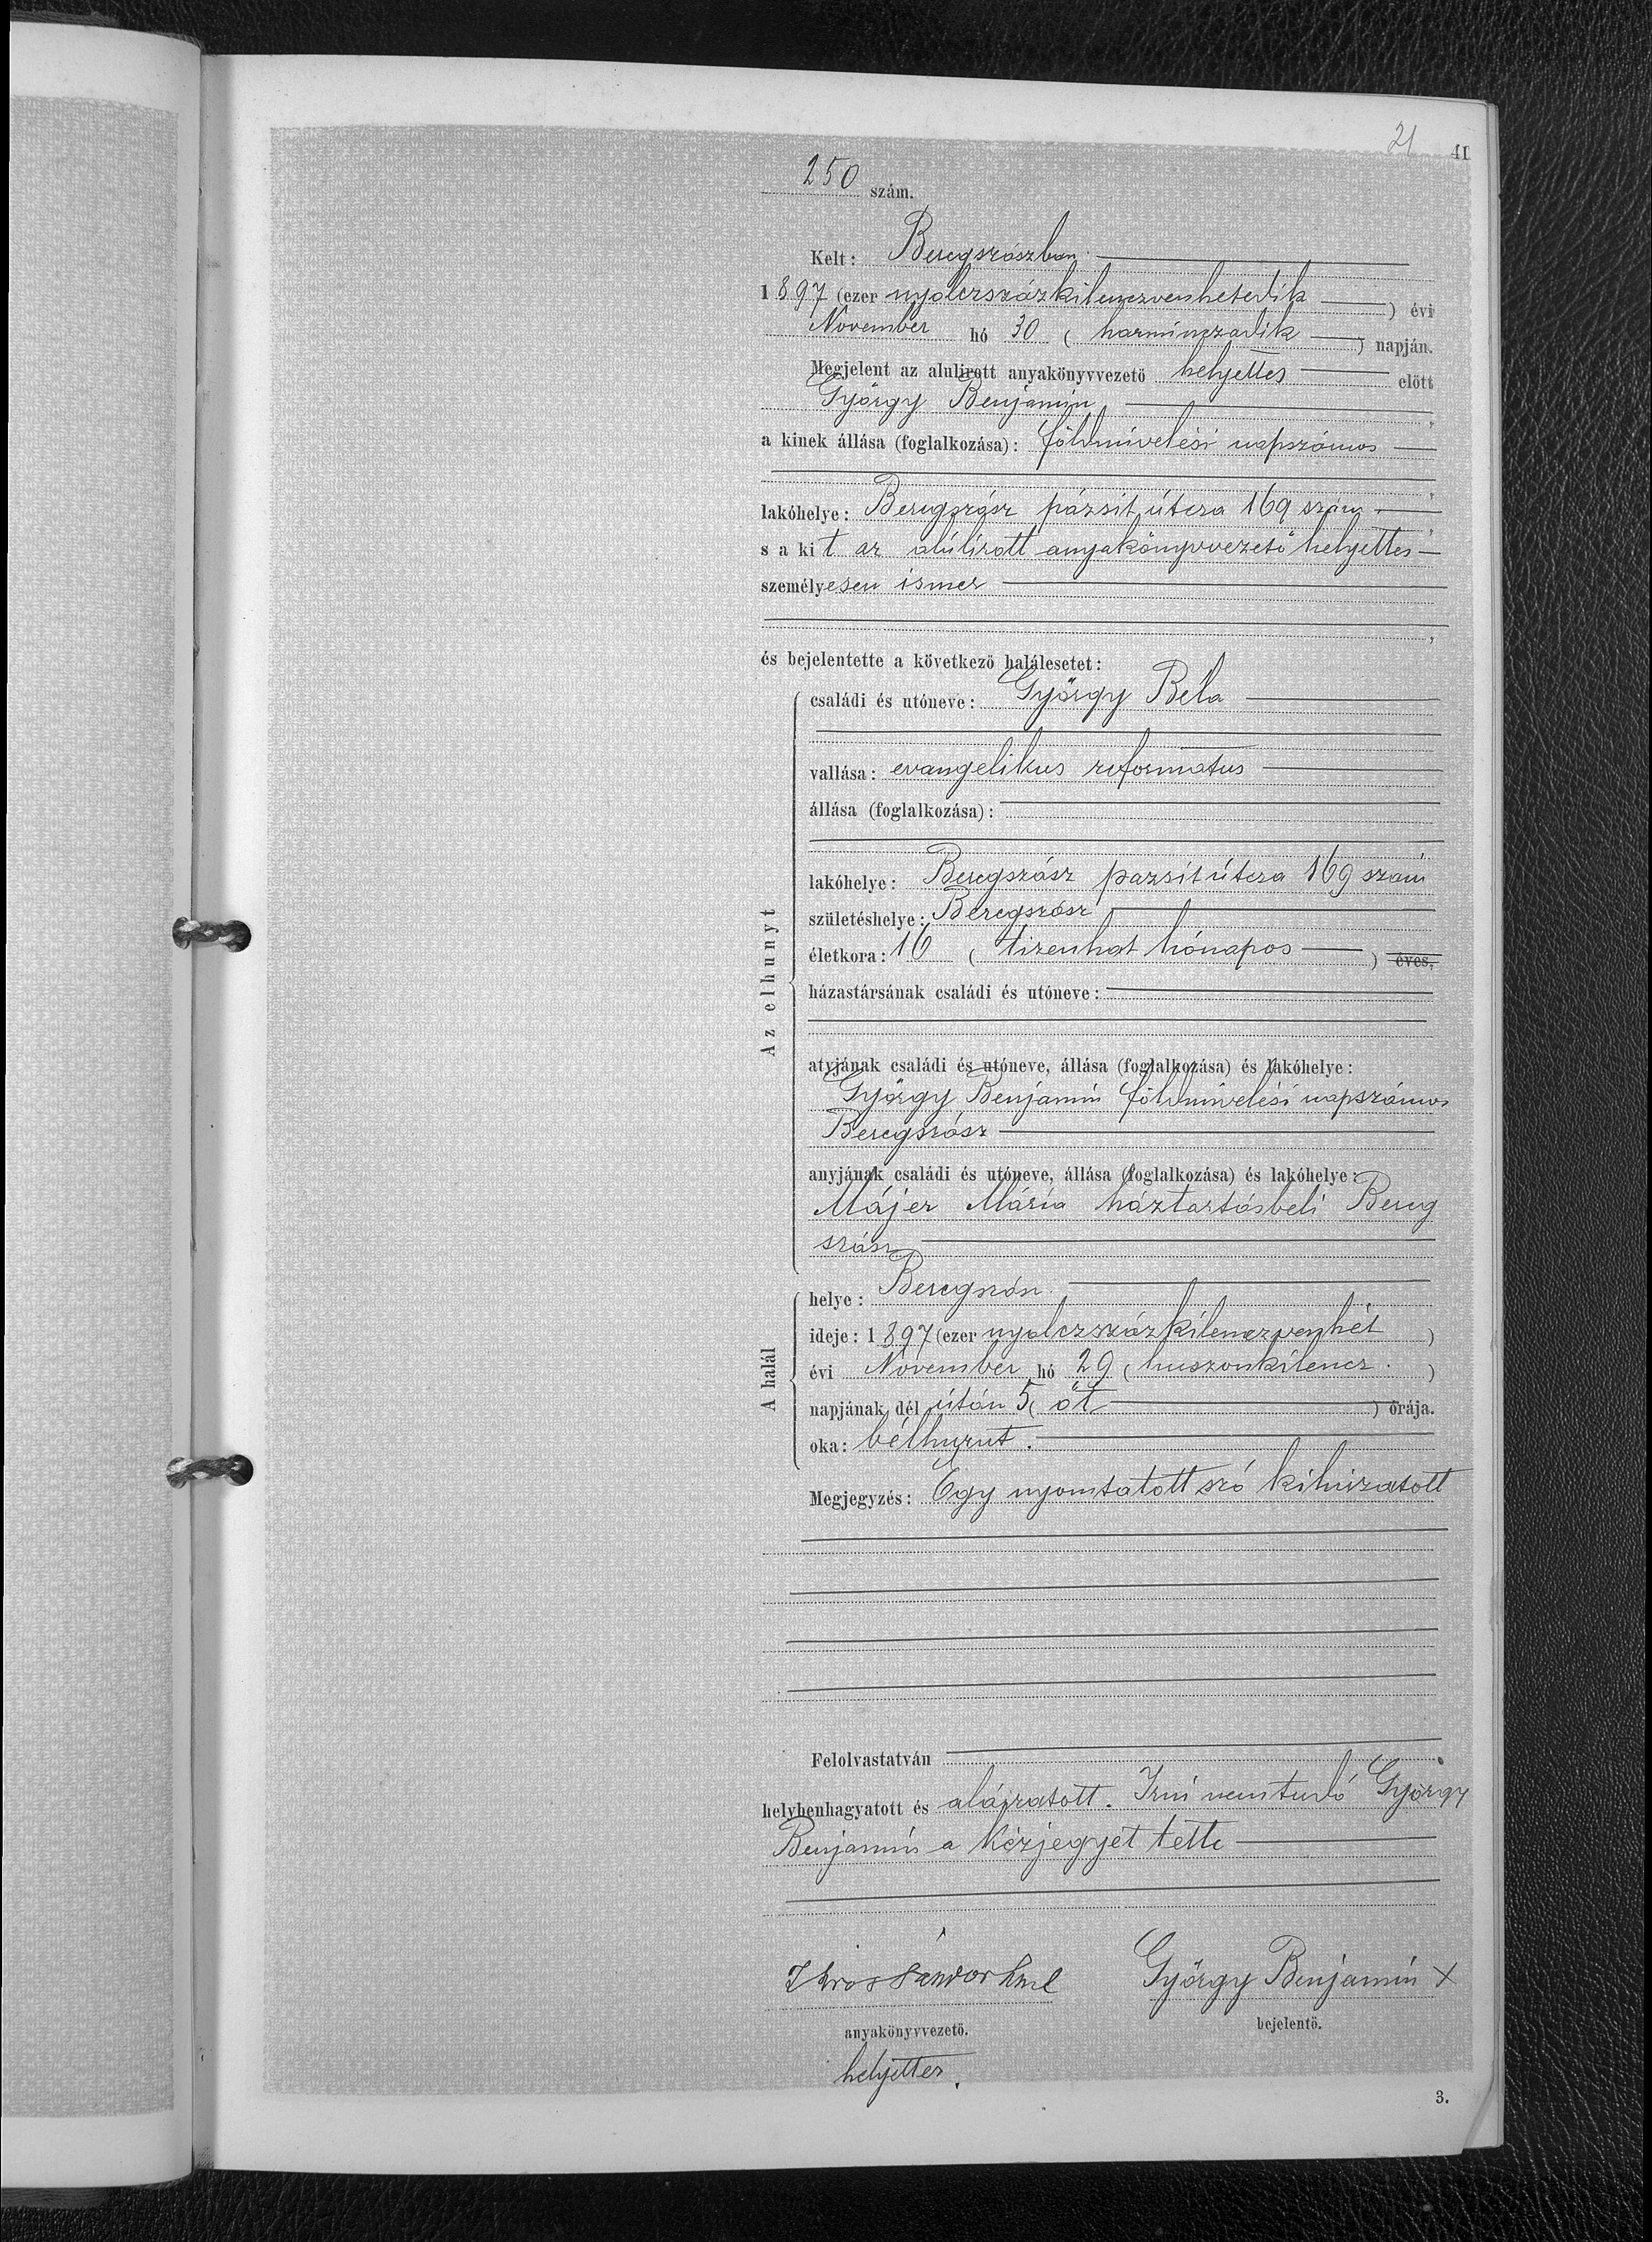 21 41
250 szám.
Kelt: Beregszászban
1897 (ezer nyolczszázkilenczvenhetedik ) évi
November hó 30 ( harminczadik ) napján.
Megjelent az alulirott anyakönyvvezető helyettes előtt
György Benjamin,
a kinek állása (foglalkozása): földmivelési napszámos
lakóhelye: Beregszász pázsit útcza 169 szám
s a kit az alúlírott anyakönyvvezető helyettes
személyesen ismer
és bejelentette a következő halálesetet:
Az elhunyt
családi és utóneve: György Béla
vallása: evangelikus reformatus
állása (foglalkozása):
lakóhelye: Beregszász pazsit útcza 169 szám
születéshelye: Beregszász
életkora: 16 ( tizenhat hónapos ) éves,
házastársának családi és utóneve:
atyjának családi és utóneve, állása (foglalkozása) és lakóhelye:
György Benjamin földmivelési napszámos
Beregszász
anyjának családi és utóneve, állása (foglalkozása) és lakóhelye:
Májer Mária háztartásbeli Bereg
szász
A halál
helye: Beregszász
ideje: 1897 (ezer nyolczszázkilenczvenhét )
évi November hó 29 ( huszonkilencz. )
napjának dél útán 5 ( öt ) órája.
oka: bélhurut.
Megjegyzés: Egy nyomtatott szó kihúzatott
Felolvastatván
helybenhagyatott és aláiratott. Irni nem tudó György
Benjamin a kézjegyét tette
Sándor György Benjamin X
anyakönyvvezető. bejelentő.
helyettes.
3.